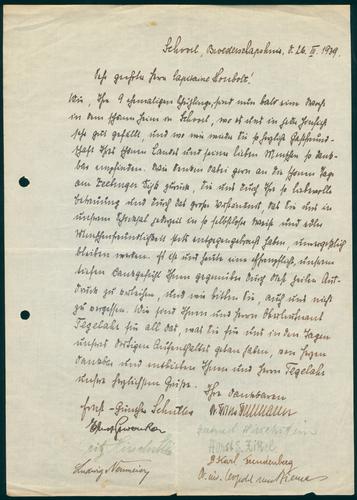 Schoorl, Bovedeschapshuis, d. 26. II. 1939.
Sehr geehrter Herr Capitaine
Wir, Ihre 9 ehemaligen Schützlinge sind nun bald eine Woche
in dem schönen Heim in Schoorl, wo es uns in jeder Hinsicht
sehr gut gefällt, und wo wir wieder die so herzliche Gastfreund-
schaft Ihres schönen Landes und seiner lieben Menschen so dank-
bar empfinden. Wir denken dabei gern an die schönen Tage
am Zeeburger Dijk zurück, die uns durch Ihre so liebevolle
Betreuung und durch das große Verständnis, das Sie uns in
unserem Schicksal jederzeit in so selbstloser Weise und edler
Menschenfreundlichkeit stets entgegengebracht haben, unvergeßlich
bleiben werden. Es ist uns heute eine Ehrenpflicht, unserem
tiefen Dankgefühl Ihnen gegenüber durch diese Zeilen Aus-
druck zu verleihen, und wir bitten Sie, auch uns nicht
zu vergessen. Wir sind Ihnen und Herrn Oberleutnant
Tegelahr für all das, was Sie für uns in den Tagen
unseres dortigen Aufenthaltes getan haben, von Herzen
dankbar und entbieten Ihnen und Herrn Tegelahr
unsere herzlichsten Grüße.
Ihre dankbaren
Ernst-Günther Schuller
Ludwig Neumeier
Karl Freudenberg
Leopold